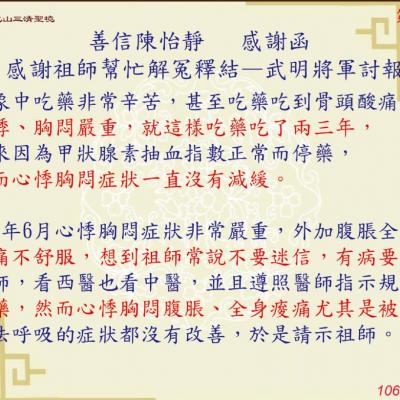 山三清聖境
善信陳怡靜 感謝函
感謝祖師幫忙解冤釋結—武明將軍討報
象中吃藥非常辛苦，甚至吃藥吃到骨頭酸痛
悸、胸悶嚴重，就這樣吃藥吃了兩三年，
來因為甲狀腺素抽血指數正常而停藥，
而心悸胸悶症狀一直沒有減緩。
年6月心悸胸悶症狀非常嚴重，外加腹脹全
痛不舒服，想到祖師常說不要迷信，有病要
師，看西醫也看中醫，並且遵照醫師指示規
藥，然而心悸胸悶腹脹、全身痠痛尤其是被
法呼吸的症狀都沒有改善，於是請示祖師。
106